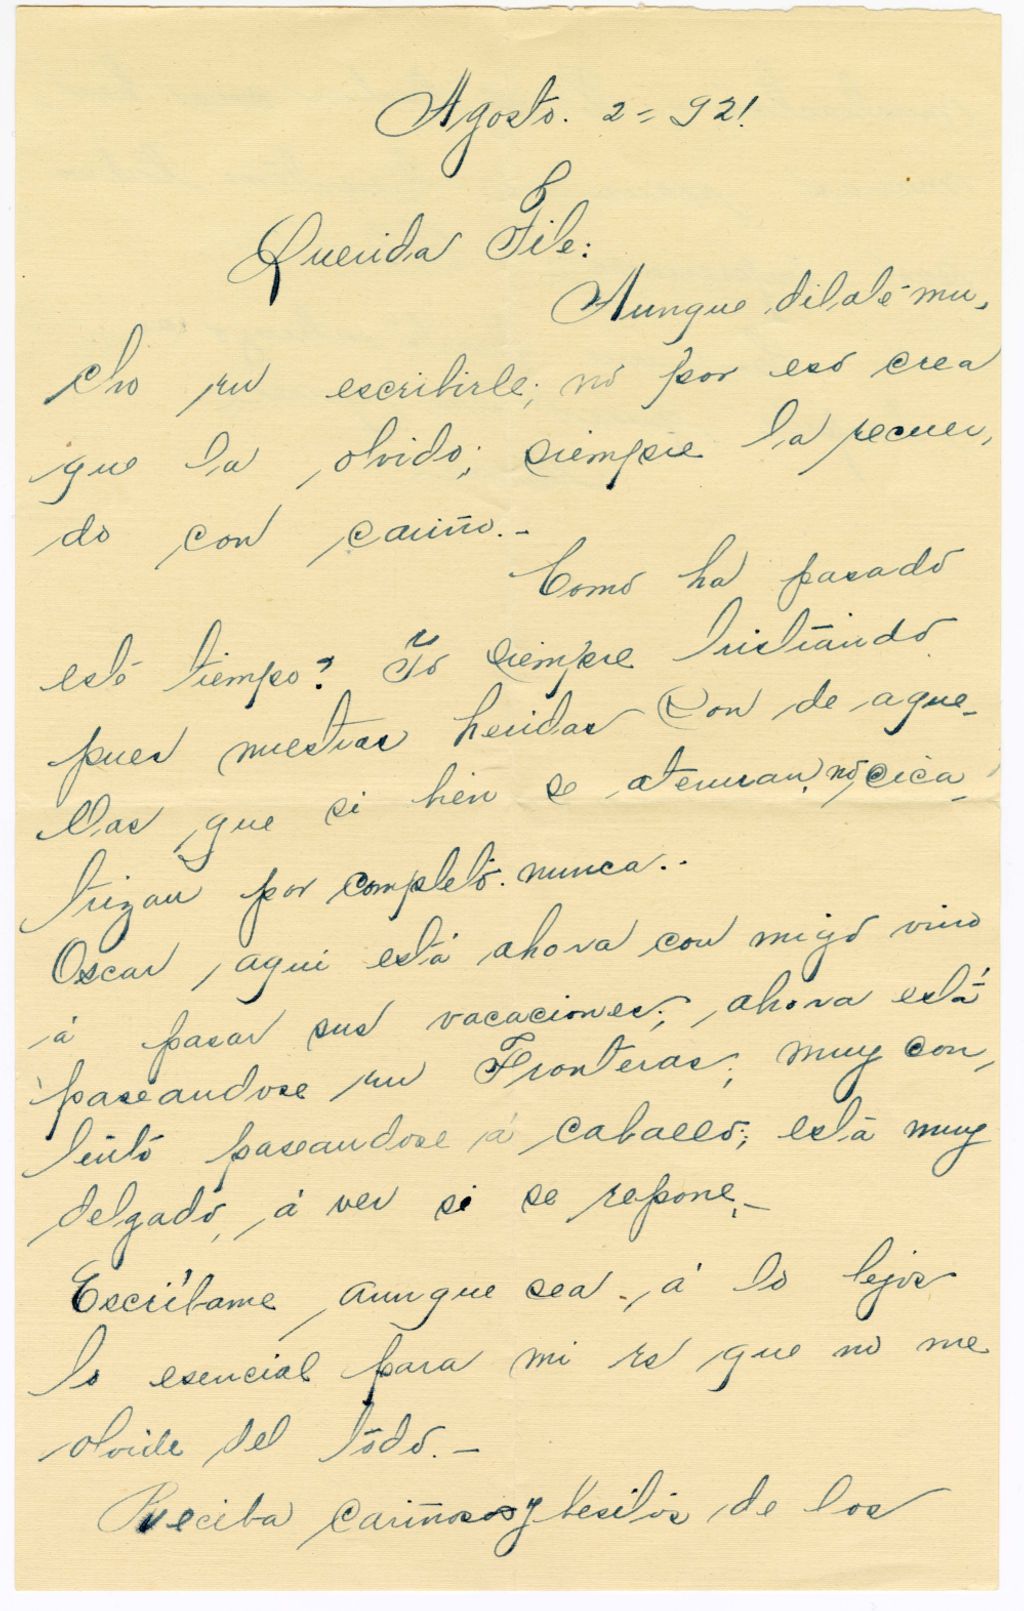 Agosto. 2 = 921
Querida File:
Aunque dilaté mu-
cho en escribirle; no por eso crea
que la olvido; siempre la recuer,
do con cariño.-
Como ha pasado
esté tiempo? Yo siempre tristiando
pues nuestras heridas son de aque-
llas que si bien se atenuan, no, cica-
trizan por completo. nunca.-
Oscar, aqui está ahora con migo vino
á pasar sus vacaciones; ahora está
paseandose en Fronteras; muy con,
tento paseandose á caballo; está muy
delgado, á ver si se repone.-
Escríbame, aunque sea á lo lejos
lo esencial para mi es que no me
olvide del todo.-
Reciba cariñosos y besitos de los